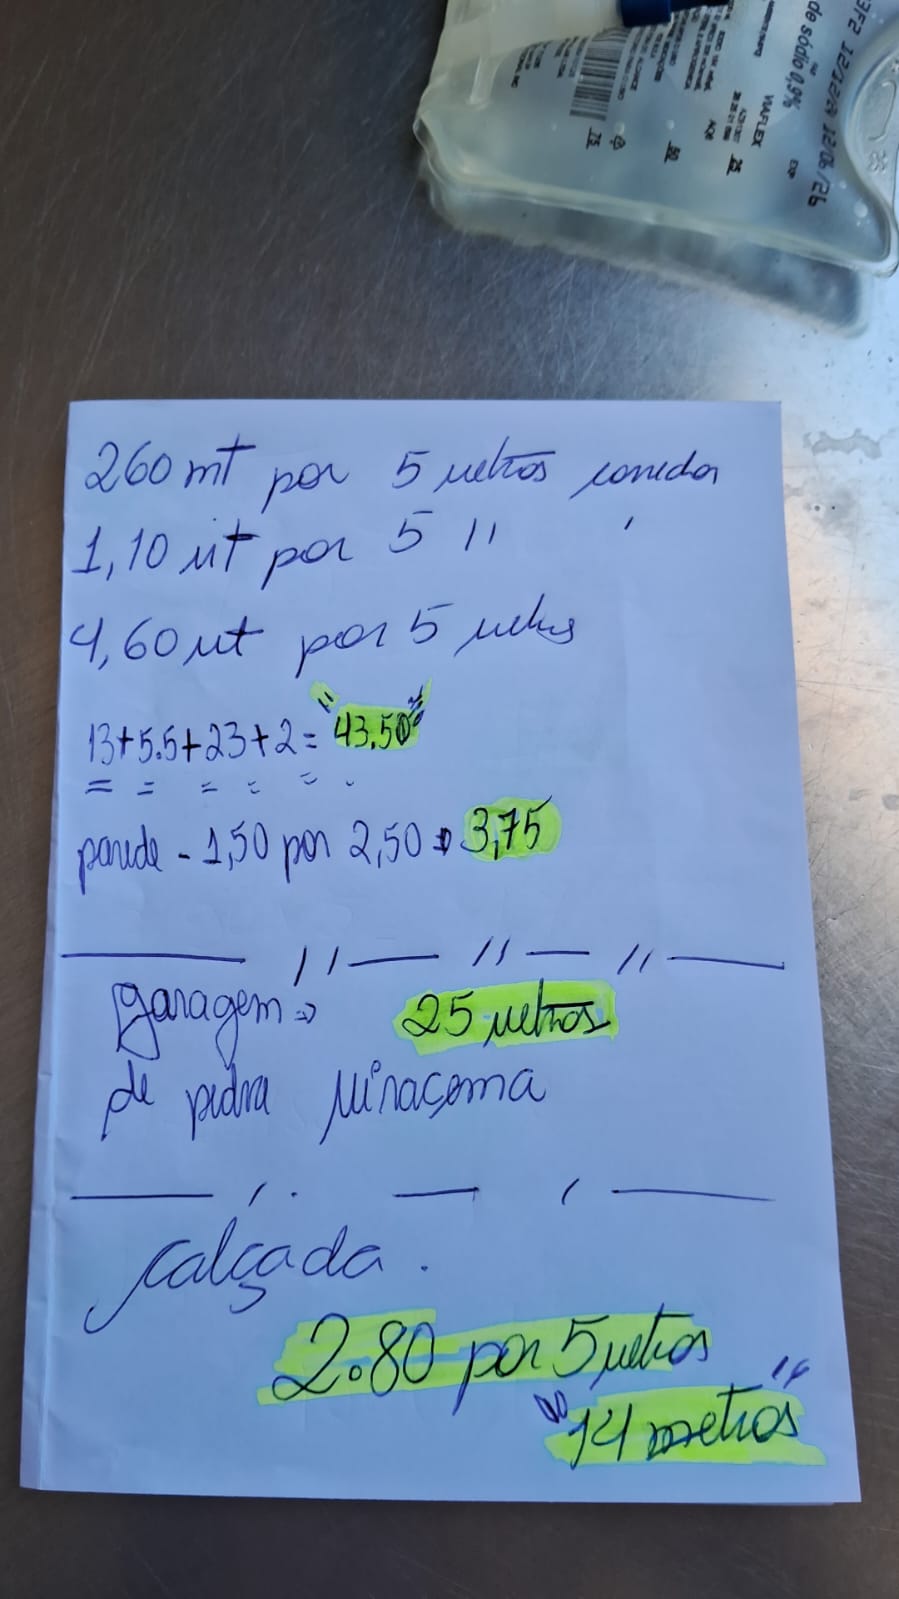 3F2 12/12/2 12/06/26
de sódio 0,9%
EXP
VIAFLEX
25
50
75
260 mt por 5 metros corredor
1,10 mt por 5 11
4,60 mt por 5 metros
13+5.5+23+2= "43,50"
parede - 1,50 por 2,50 => 3,75
garagem => 25 metros
de pedra Miracema
calçada.
2.80 por 5 metros
"14 metros"